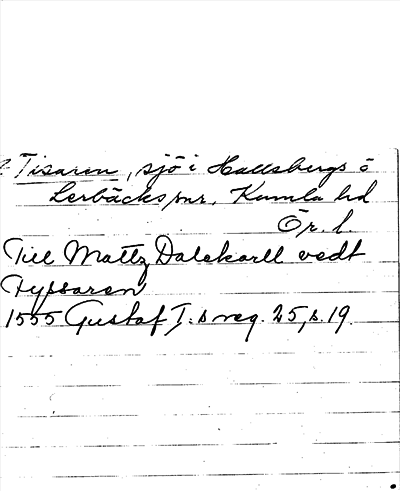 Tisaren, sjö i Hallsbergs o
Lerbäcks snr, Kumla hd
Ör. l.
Till Mattz Dalekarll vedt
Tyssaren
1555 Gustaf I:s reg. 25, s. 19.